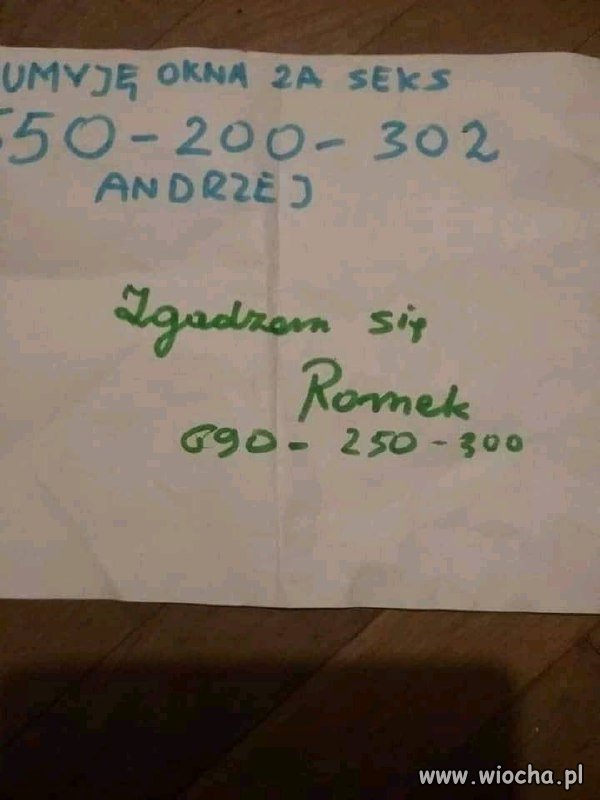 UMYJĘ OKNA ZA SEKS
550-200-302
ANDRZEJ
Zgadzam się
Romek
690-250-300
www.wiocha.pl